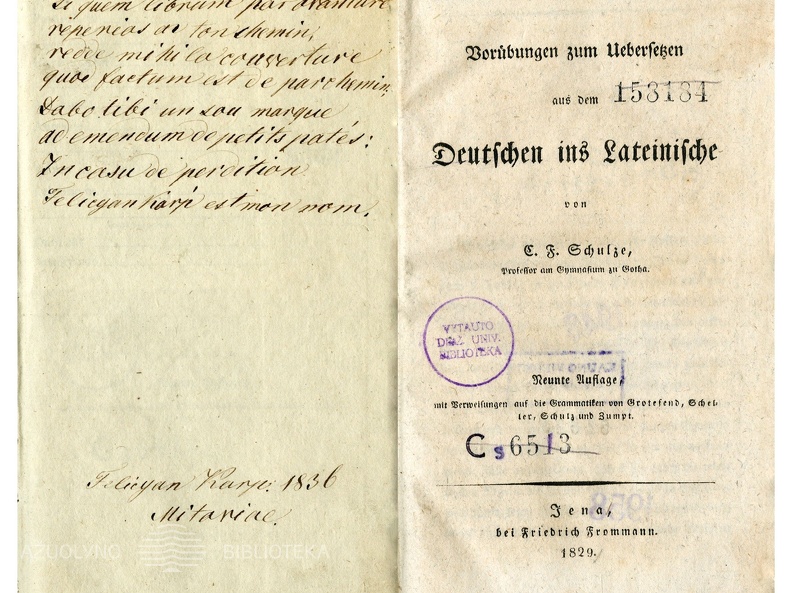 si quem librum par avanture
reperias ar ton chemin,
redde mihi la couverture
quod factum est de parchemin
Dabo tibi un sou marque
ad emendum de petits patés:
In casu de perdition
Felicyan Karp est mon nom.
Felicyan Karp: 1836
Mitaviae.
AZUOLYNO BIBLIOTEKA
Vorübungen zum Uebersetzen
aus dem 153134
Deutschen ins Lateinische
von
C. F. Schulze,
Professor am Gymnasium zu Gotha.
VYTAUTO
DIDŽ. UNIV.
BIBLIOTEKA
Neunte Auflage,
mit Verweisungen auf die Grammatiken von Grotefend, Schel-
ler, Schulz und Zumpt.
Cs 6513
1958
Jena,
bei Friedrich Frommann.
1829.